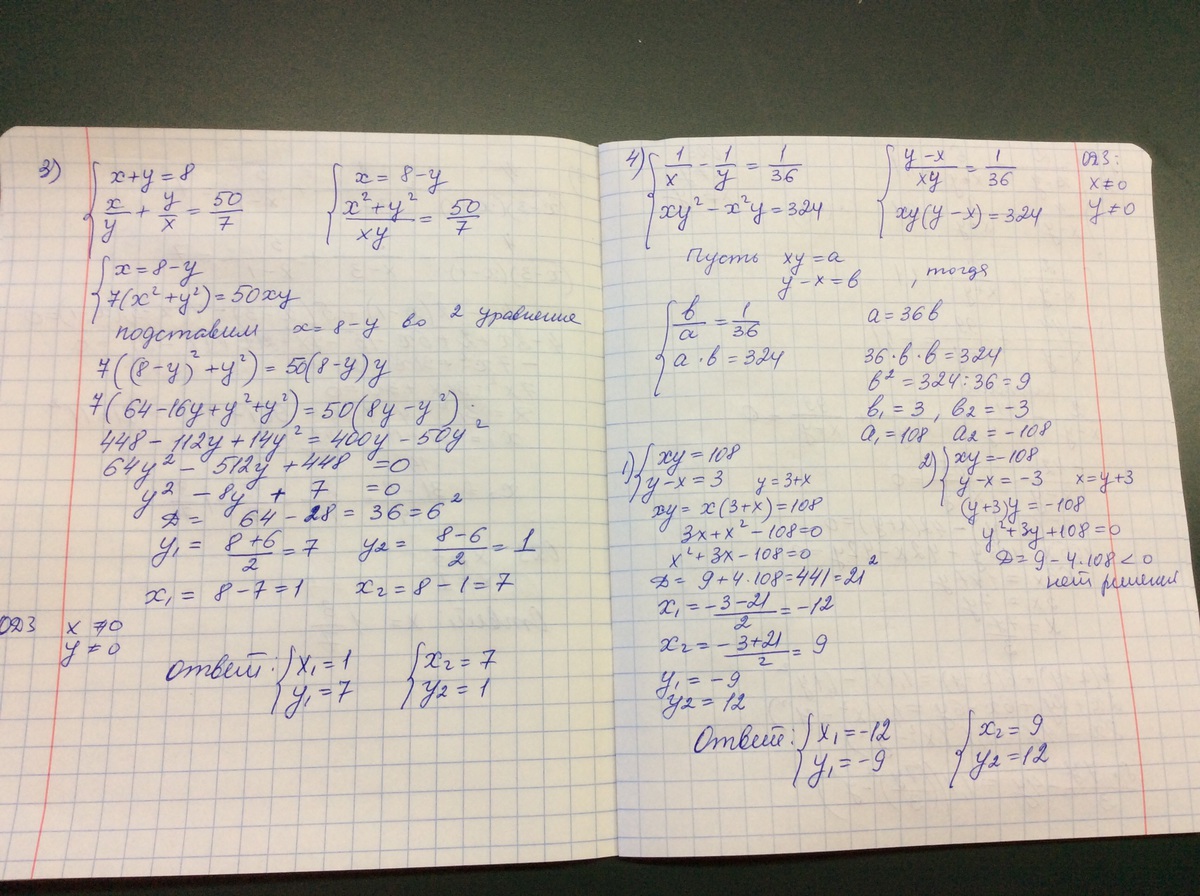 3) { x+y=8
x/y + y/x = 50/7
{ x = 8-y
(x²+y²)/xy = 50/7
{ x=8-y
7(x²+y²)=50xy
подставим x=8-y во 2 уравнение
7((8-y)²+y²)=50(8-y)y
7(64-16y+y²+y²)=50(8y-y²)
448-112y+14y²=400y-50y²
64y²-512y+448=0
y²-8y+7=0
D= 64-28=36=6²
y₁= (8+6)/2=7 y₂= (8-6)/2=1
x₁= 8-7=1 x₂=8-1=7
ОДЗ x≠0
y≠0
Ответ: { x₁=1 { x₂=7
y₁=7 y₂=1
4) { 1/x - 1/y = 1/36
xy²-x²y=324
{ (y-x)/xy = 1/36
xy(y-x)=324
ОДЗ:
x≠0
y≠0
Пусть xy=a
y-x=b , тогда
{ b/a = 1/36
a·b=324
a=36b
36·b·b=324
b²=324:36=9
b₁=3, b₂=-3
a₁=108 a₂=-108
1) { xy=108
y-x=3 y=3+x
xy= x(3+x)=108
3x+x²-108=0
x²+3x-108=0
D= 9+4·108=441=21²
x₁= (-3-21)/2=-12
x₂= (-3+21)/2= 9
y₁=-9
y₂=12
2) { xy=-108
y-x=-3 x=y+3
(y+3)y=-108
y²+3y+108=0
D=9-4·108<0
нет решения
Ответ: { x₁=-12 { x₂=9
y₁=-9 y₂=12